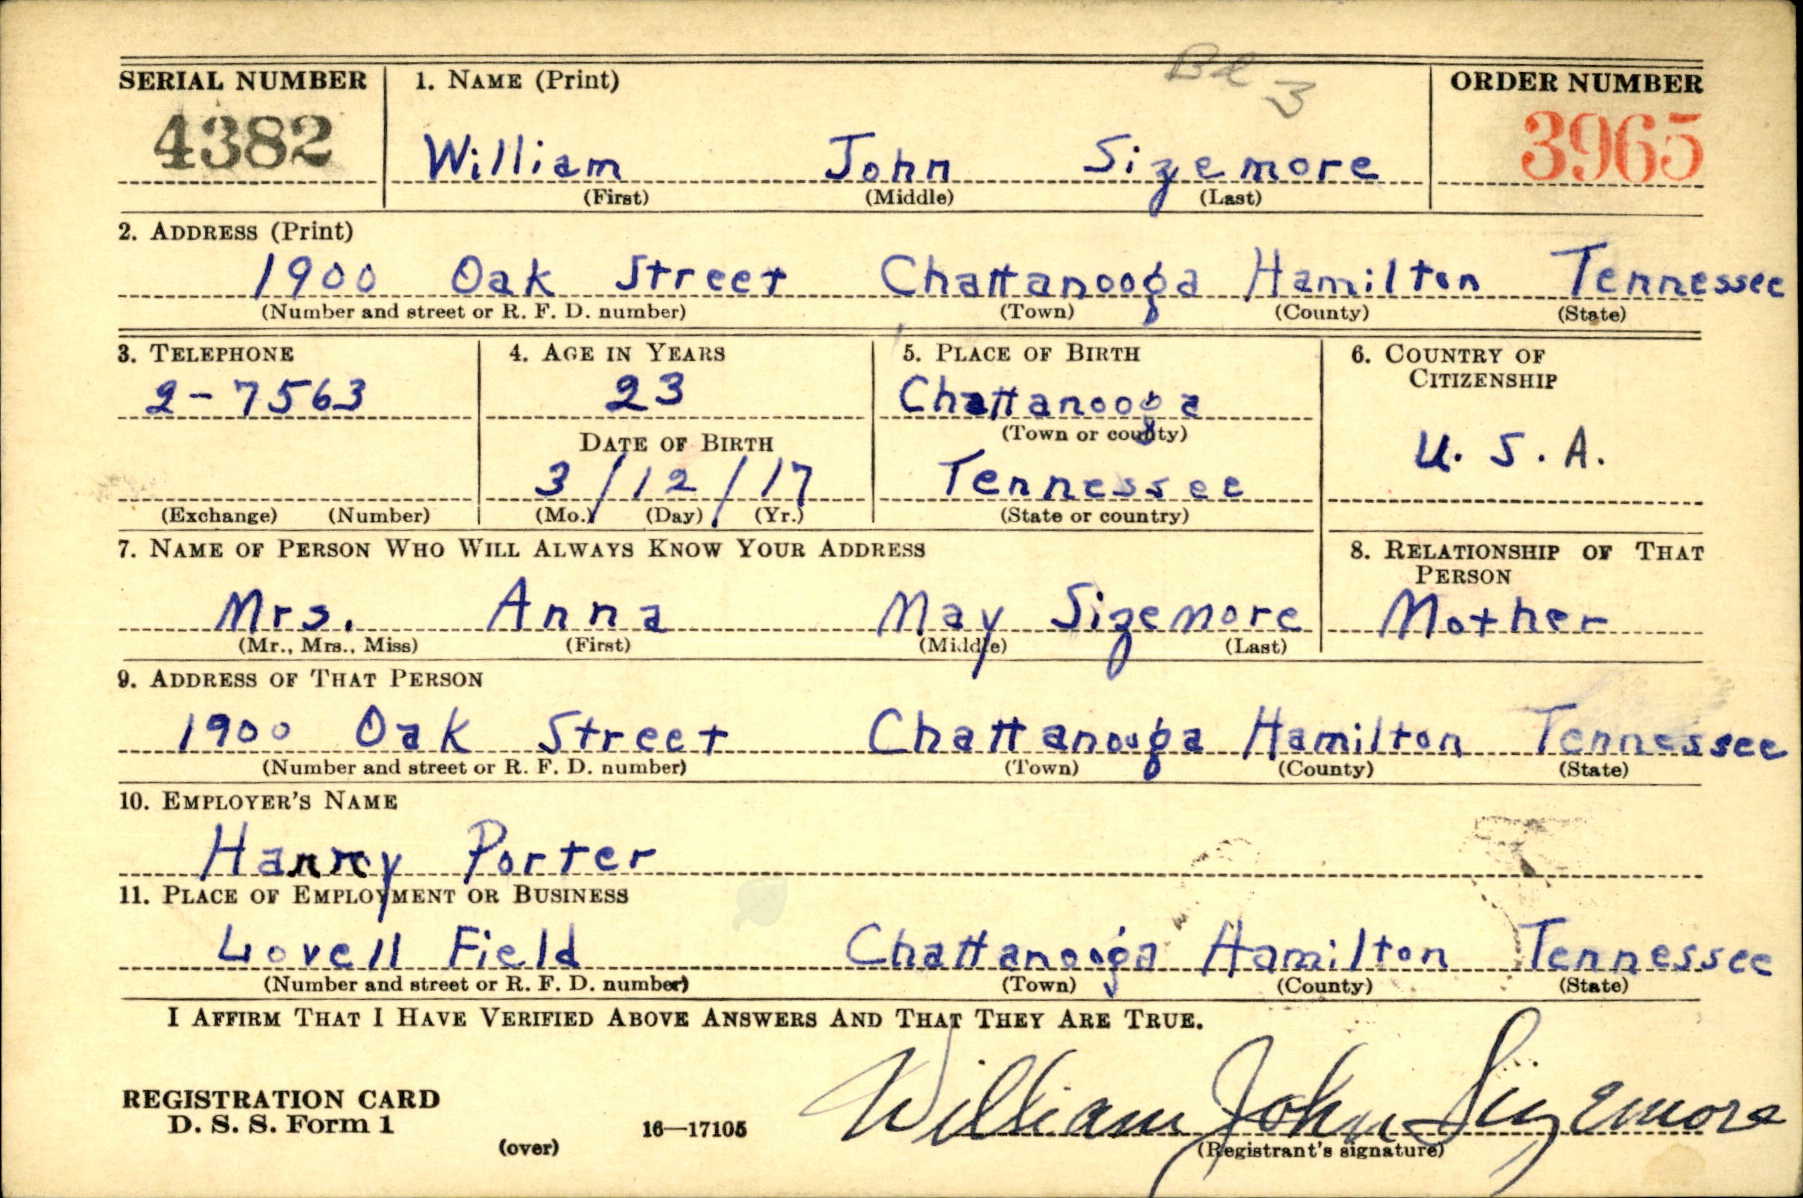 Bd 3
SERIAL NUMBER 1. NAME (Print) ORDER NUMBER
4382 William John Sizemore 3965
(First) (Middle) (Last)
2. ADDRESS (Print)
1900 Oak Street Chattanooga Hamilton Tennessee
(Number and street or R. F. D. number) (Town) (County) (State)
3. TELEPHONE 4. AGE IN YEARS 5. PLACE OF BIRTH 6. COUNTRY OF
CITIZENSHIP
2-7563 23 Chattanooga
DATE OF BIRTH (Town or county)
U. S. A.
3/12/17 Tennessee
(Exchange) (Number) (Mo.) (Day) (Yr.) (State or country)
7. NAME OF PERSON WHO WILL ALWAYS KNOW YOUR ADDRESS 8. RELATIONSHIP OF THAT
PERSON
Mrs. Anna May Sizemore Mother
(Mr., Mrs., Miss) (First) (Middle) (Last)
9. ADDRESS OF THAT PERSON
1900 Oak Street Chattanooga Hamilton Tennessee
(Number and street or R. F. D. number) (Town) (County) (State)
10. EMPLOYER'S NAME
Harry Porter
11. PLACE OF EMPLOYMENT OR BUSINESS
Lovell Field Chattanooga Hamilton Tennessee
(Number and street or R. F. D. number) (Town) (County) (State)
I AFFIRM THAT I HAVE VERIFIED ABOVE ANSWERS AND THAT THEY ARE TRUE.
REGISTRATION CARD
D. S. S. Form 1
16—17105 William John Sizemore
(over) (Registrant's signature)